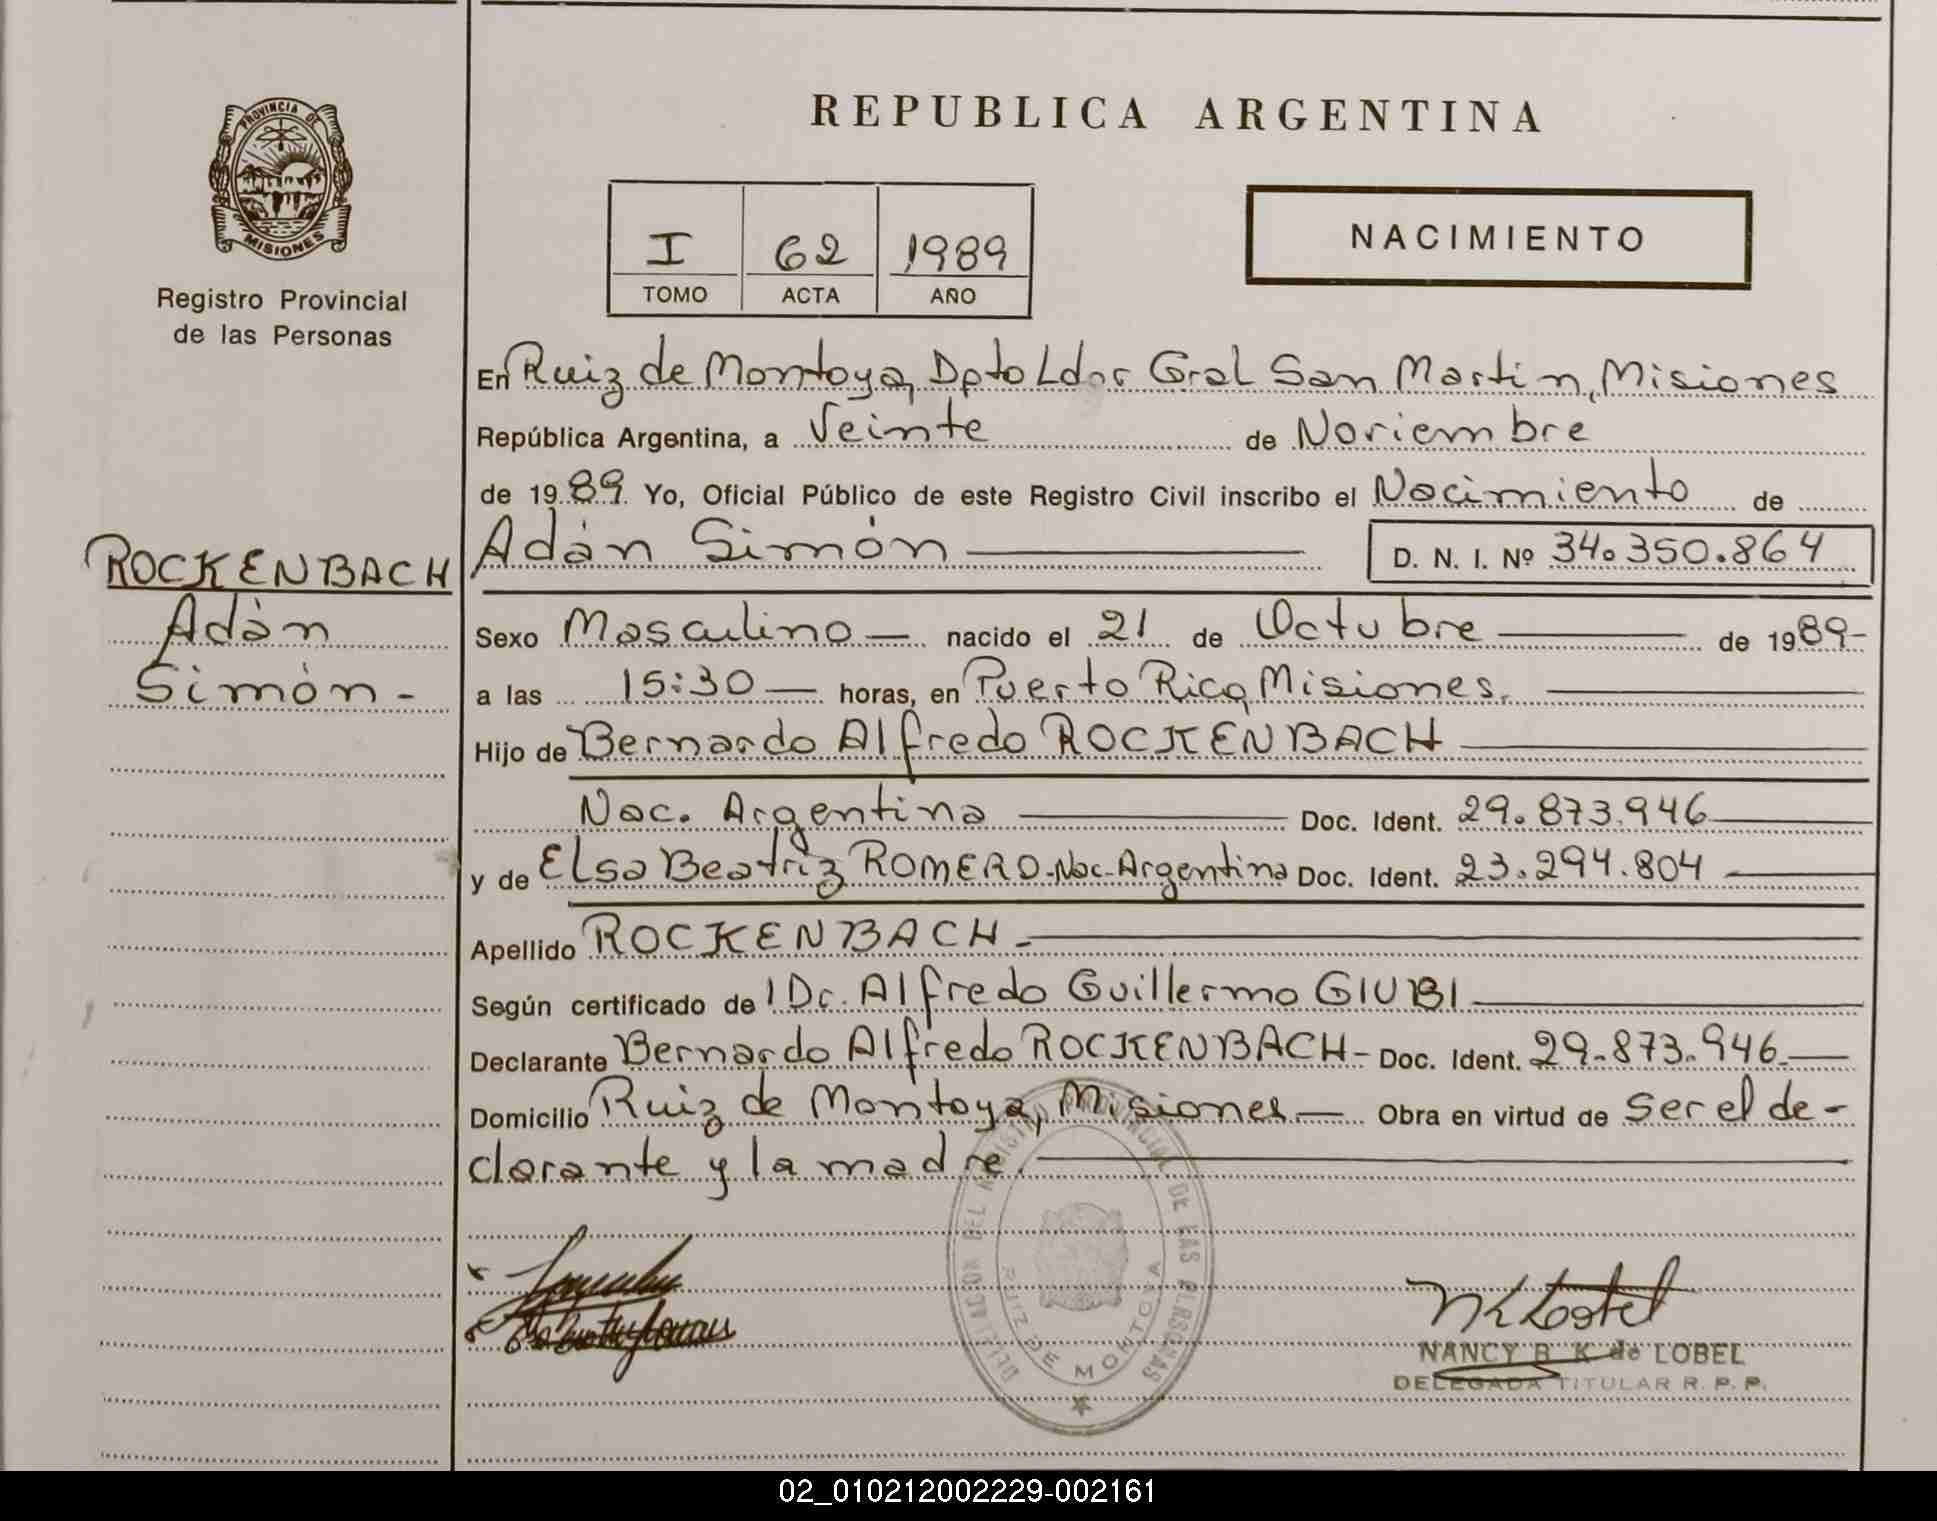 PROVINCIA DE
MISIONES
Registro Provincial
de las Personas
ROCKENBACH
Adán
Simón -
REPUBLICA ARGENTINA
I 62 1989
TOMO ACTA AÑO
NACIMIENTO
En Ruiz de Montoya, Dpto Ldor Gral San Martin, Misiones
República Argentina, a Veinte de Noviembre
de 1989 Yo, Oficial Público de este Registro Civil inscribo el Nacimiento de
Adán Simón
D. N. I. Nº 34.350.864
Sexo Masculino nacido el 21 de Octubre de 1989-
a las 15:30 horas, en Puerto Rico, Misiones.
Hijo de Bernardo Alfredo ROCKENBACH
Nac. Argentina Doc. Ident. 29.873.946
y de Elsa Beatriz ROMERO-Nac-Argentina Doc. Ident. 23.294.804
Apellido ROCKENBACH.
Según certificado de l Dr. Alfredo Guillermo GIUBI
Declarante Bernardo Alfredo ROCKENBACH- Doc. Ident. 29.873.946
Domicilio Ruiz de Montoya, Misiones. Obra en virtud de Ser el de-
clarante y la madre.
DEL REGISTRO PROVINCIAL DE LAS PERSONAS
RUIZ DE MONTOYA
NANCY B. K. de LOBEL
DELEGADA TITULAR R. P. P.
02_010212002229-002161